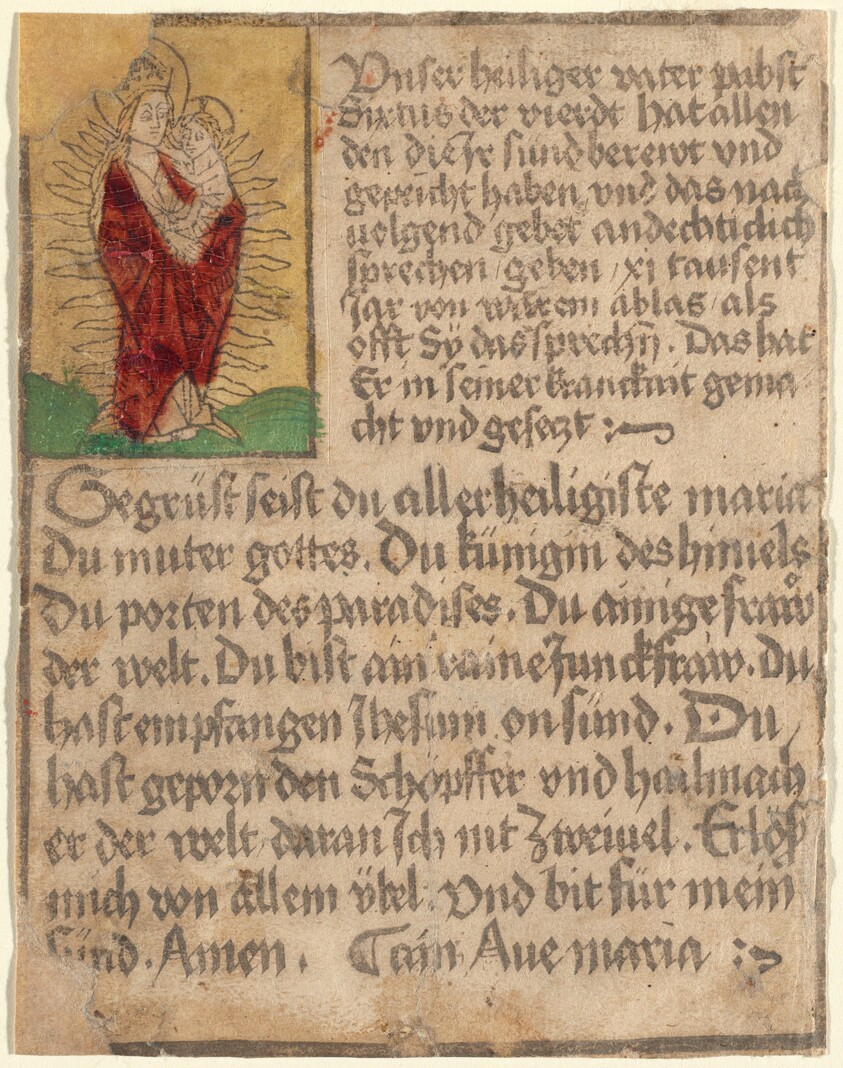 Vnser heiliger vater pabst
Sixtus der vierdt hat allen
den die Ir sünd berewt vnd
gepeicht haben, vnd das nach
uolgend gebet andechticlich
sprechen / geben / xj tausent
Jar von warem ablas / als
offt Sÿ das sprechn̄. Das hat
Er in seiner kranckait gema
cht vnd gesetzt :~
Gegrüst seist du aller heiligiste maria
Du muter gottes. Du künigin des himels
Du porten des paradises. Du ainige fraẘ
der welt. Du bist ain raine Junckfraw. du
hast empfangen Jhesum on sünd. Du
hast geporn den Schöpffer vnd hailmach
er der welt daran Ich nit Zweiuel. Erlöß
mich von allem v̈bel. Vnd bit für mein
Sünd. Amen. Ain Aue maria :~